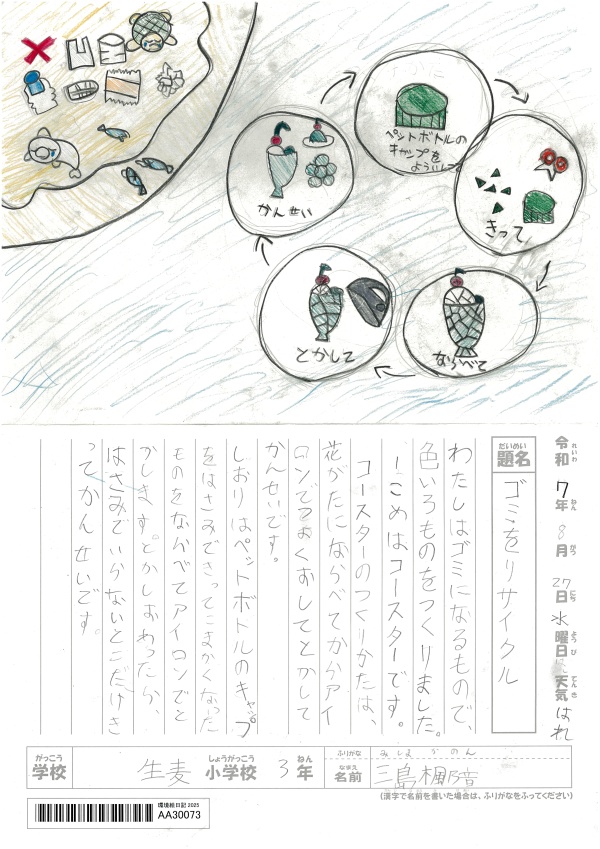 ペットボトルの
キャップを
よういして
きって
ならべて
とかして
かんせい
令和7年8月27日水曜日 天気 はれ
れいわ ねん がつ にち ようび てんき
だいめい
題名
ゴミをリサイクル
わたしはゴミになるもので、
色いろものをつくりました。
一こめはコースターです。
コースターのつくりかたは、
花がたにならべてからアイ
ロンでつよくおしてとかして
かんせいです。
しおりはペットボトルのキャップ
をはさみできってこまかくなった
ものをならべてアイロンでと
かします。とかしおわったら、
はさみでいらないとこだけき
ってかんせいです。
がっこう しょうがっこう ねん
学校 生麦 小学校 3年
ふりがな みしま かのん
なまえ
名前 三島楓乃音
(漢字で名前を書いた場合は、ふりがなをふってください)
環境絵日記2025
AA30073